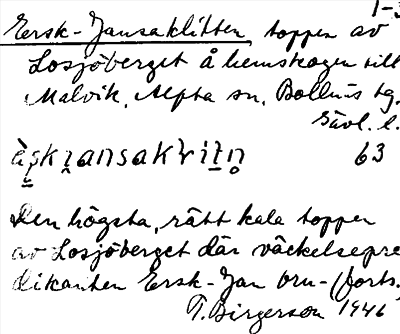 1-3
Ersk-Jansaklitten, toppen av
Losjöberget å hemskogen till
Malvik, Alfta sn, Bollnäs tg.
Gävl. l.
63
Den högsta, rätt kala toppen
av Losjöberget där väckelsepre
dikanten Ersk-Jan bru- (forts.)
T. Birgerson 1946